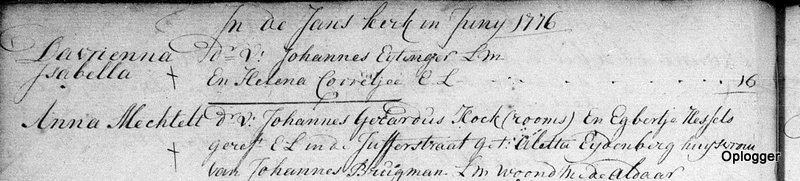 In de Jans kerk in Juny 1776
Lavrienna dr. V: Johannes Eytinger Lm
Isabella † En Helena Corretjee E L - - - - - - - 16
Anna Mechtelt dr. V: Johannes Gerardus Kock (rooms) En Egbertje Hessels
† geref. E L in de Jufferstraat get: Aletta Eydenberg huysvrou
van Johannes Bruigman Lm woond mede Aldaar
Oplogger